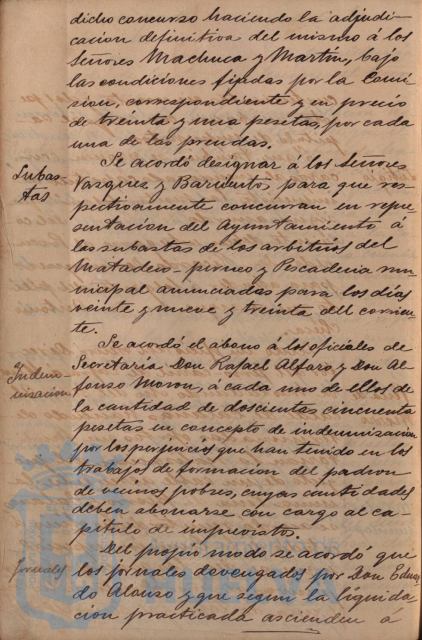 dicho concurso haciendo la adjudi-
cacion definitiva del mismo á los
Señores Machuca y Martín, bajo
las condiciones fijadas por la Comi-
sion, correspondiente y en precio
de treinta y una pesetas, por cada
una de las prendas.
Subas-
tas
Se acordó designar á los Señores
Vazquez y Barriento, para que res-
pectivamente concurran en repre-
sentacion del Ayuntamiento á
las subastas de los arbitrios del
Matadero - y Pescaderia mu-
nicipal anunciadas para los días
veinte y nueve y treinta del corrien-
te.
Indem-
nizacion
Se acordó el abono á los oficiales de
Secretaría Don Rafael Alfaro, y Don Al-
fonso Moron, á cada uno de ellos de
la cantidad de doscientas cincuenta
pesetas en concepto de indemnizacion
por los perjuicios que han tenido en los
trabajos de formacion del padron
de vecinos pobres, cuyas cantidades
deben abonarse con cargo al ca-
pitulo de imprevistos.
Jornales
Del propio modo se acordó que
los jornales devengados por Don Eduar-
do Alonso y que segun la liquida-
cion practicada ascienden á